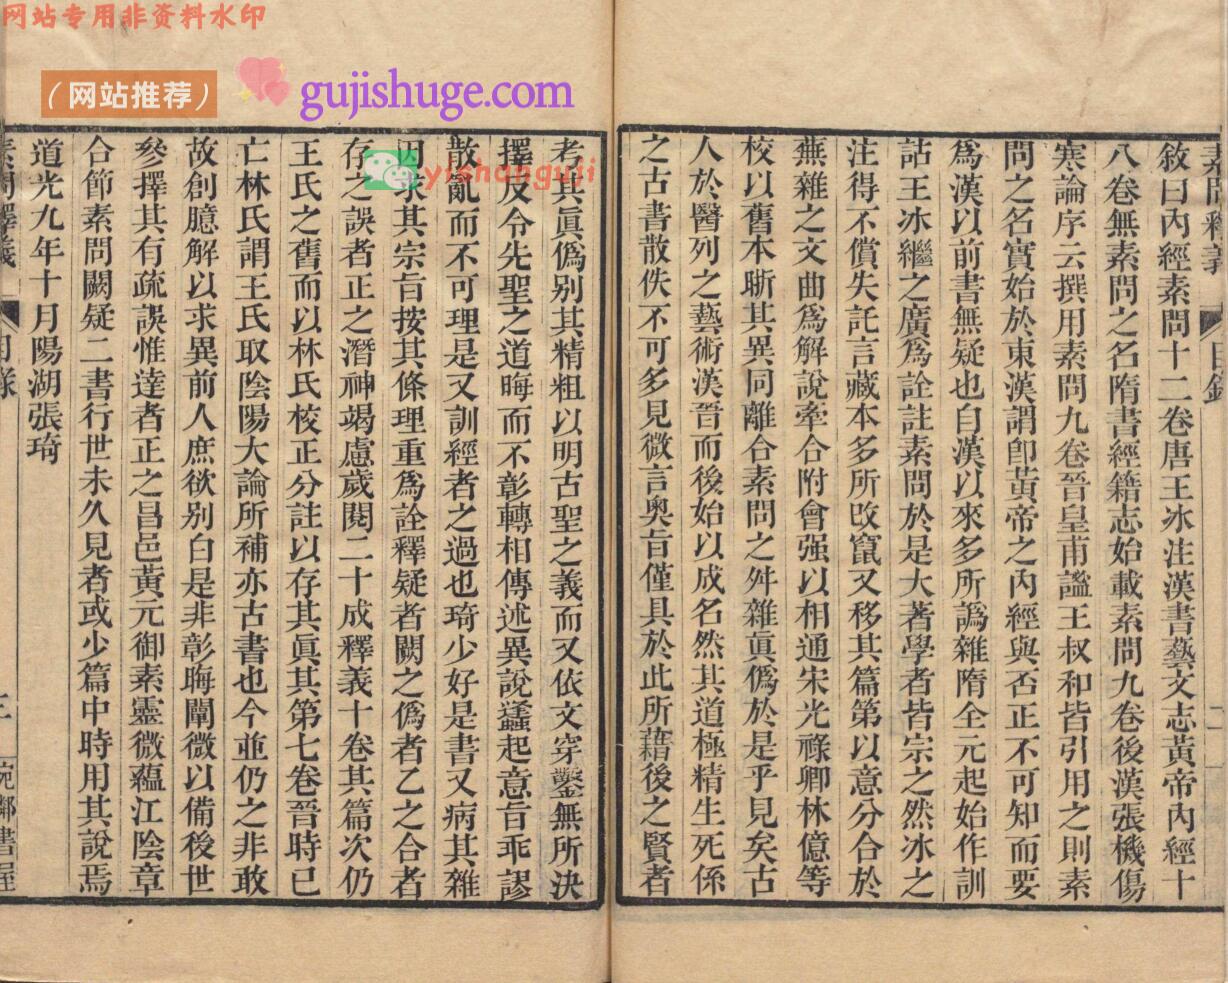 网站专用非资料水印
（网站推荐）
gujishuge.com
yishanguji
素問釋義
目錄
二
敘曰內經素問十二卷唐王冰注漢書藝文志黃帝內經十
八卷無素問之名隋書經籍志始載素問九卷後漢張機傷
寒論序云撰用素問九卷晉皇甫謐王叔和皆引用之則素
問之名實始於東漢謂卽黃帝之內經與否正不可知而要
爲漢以前書無疑也自漢以來多所譌雜隋全元起始作訓
詁王冰繼之廣爲詮註素問於是大著學者皆宗之然冰之
注得不償失託言藏本多所改竄又移其篇第以意分合於
蕪雜之文曲爲解說牽合附會强以相通宋光祿卿林億等
校以舊本晣其異同離合素問之舛雜眞僞於是乎見矣古
人於醫列之藝術漢晉而後始以成名然其道極精生死係
之古書散佚不可多見微言奥旨僅具於此所藉後之賢者
考其眞僞别其精粗以明古聖之義而又依文穿鑿無所決
擇反令先聖之道晦而不彰轉相傳述異說蠭起意旨乖謬
散亂而不可理是又訓經者之過也琦少好是書又病其雜
因求其宗旨按其條理重爲詮釋疑者闕之僞者乙之合者
存之誤者正之潛神竭慮歲閱二十成釋義十卷其篇次仍
王氏之舊而以林氏校正分註以存其眞其第七卷晉時已
亡林氏謂王氏取陰陽大論所補亦古書也今並仍之非敢
故創臆解以求異前人庶欲别白是非彰晦闡微以備後世
參擇其有疏誤惟達者正之昌邑黃元御素靈微蘊江陰章
合節素問闕疑二書行世未久見者或少篇中時用其說焉
道光九年十月陽湖張琦
素問釋義
目錄
三
宛鄰書屋